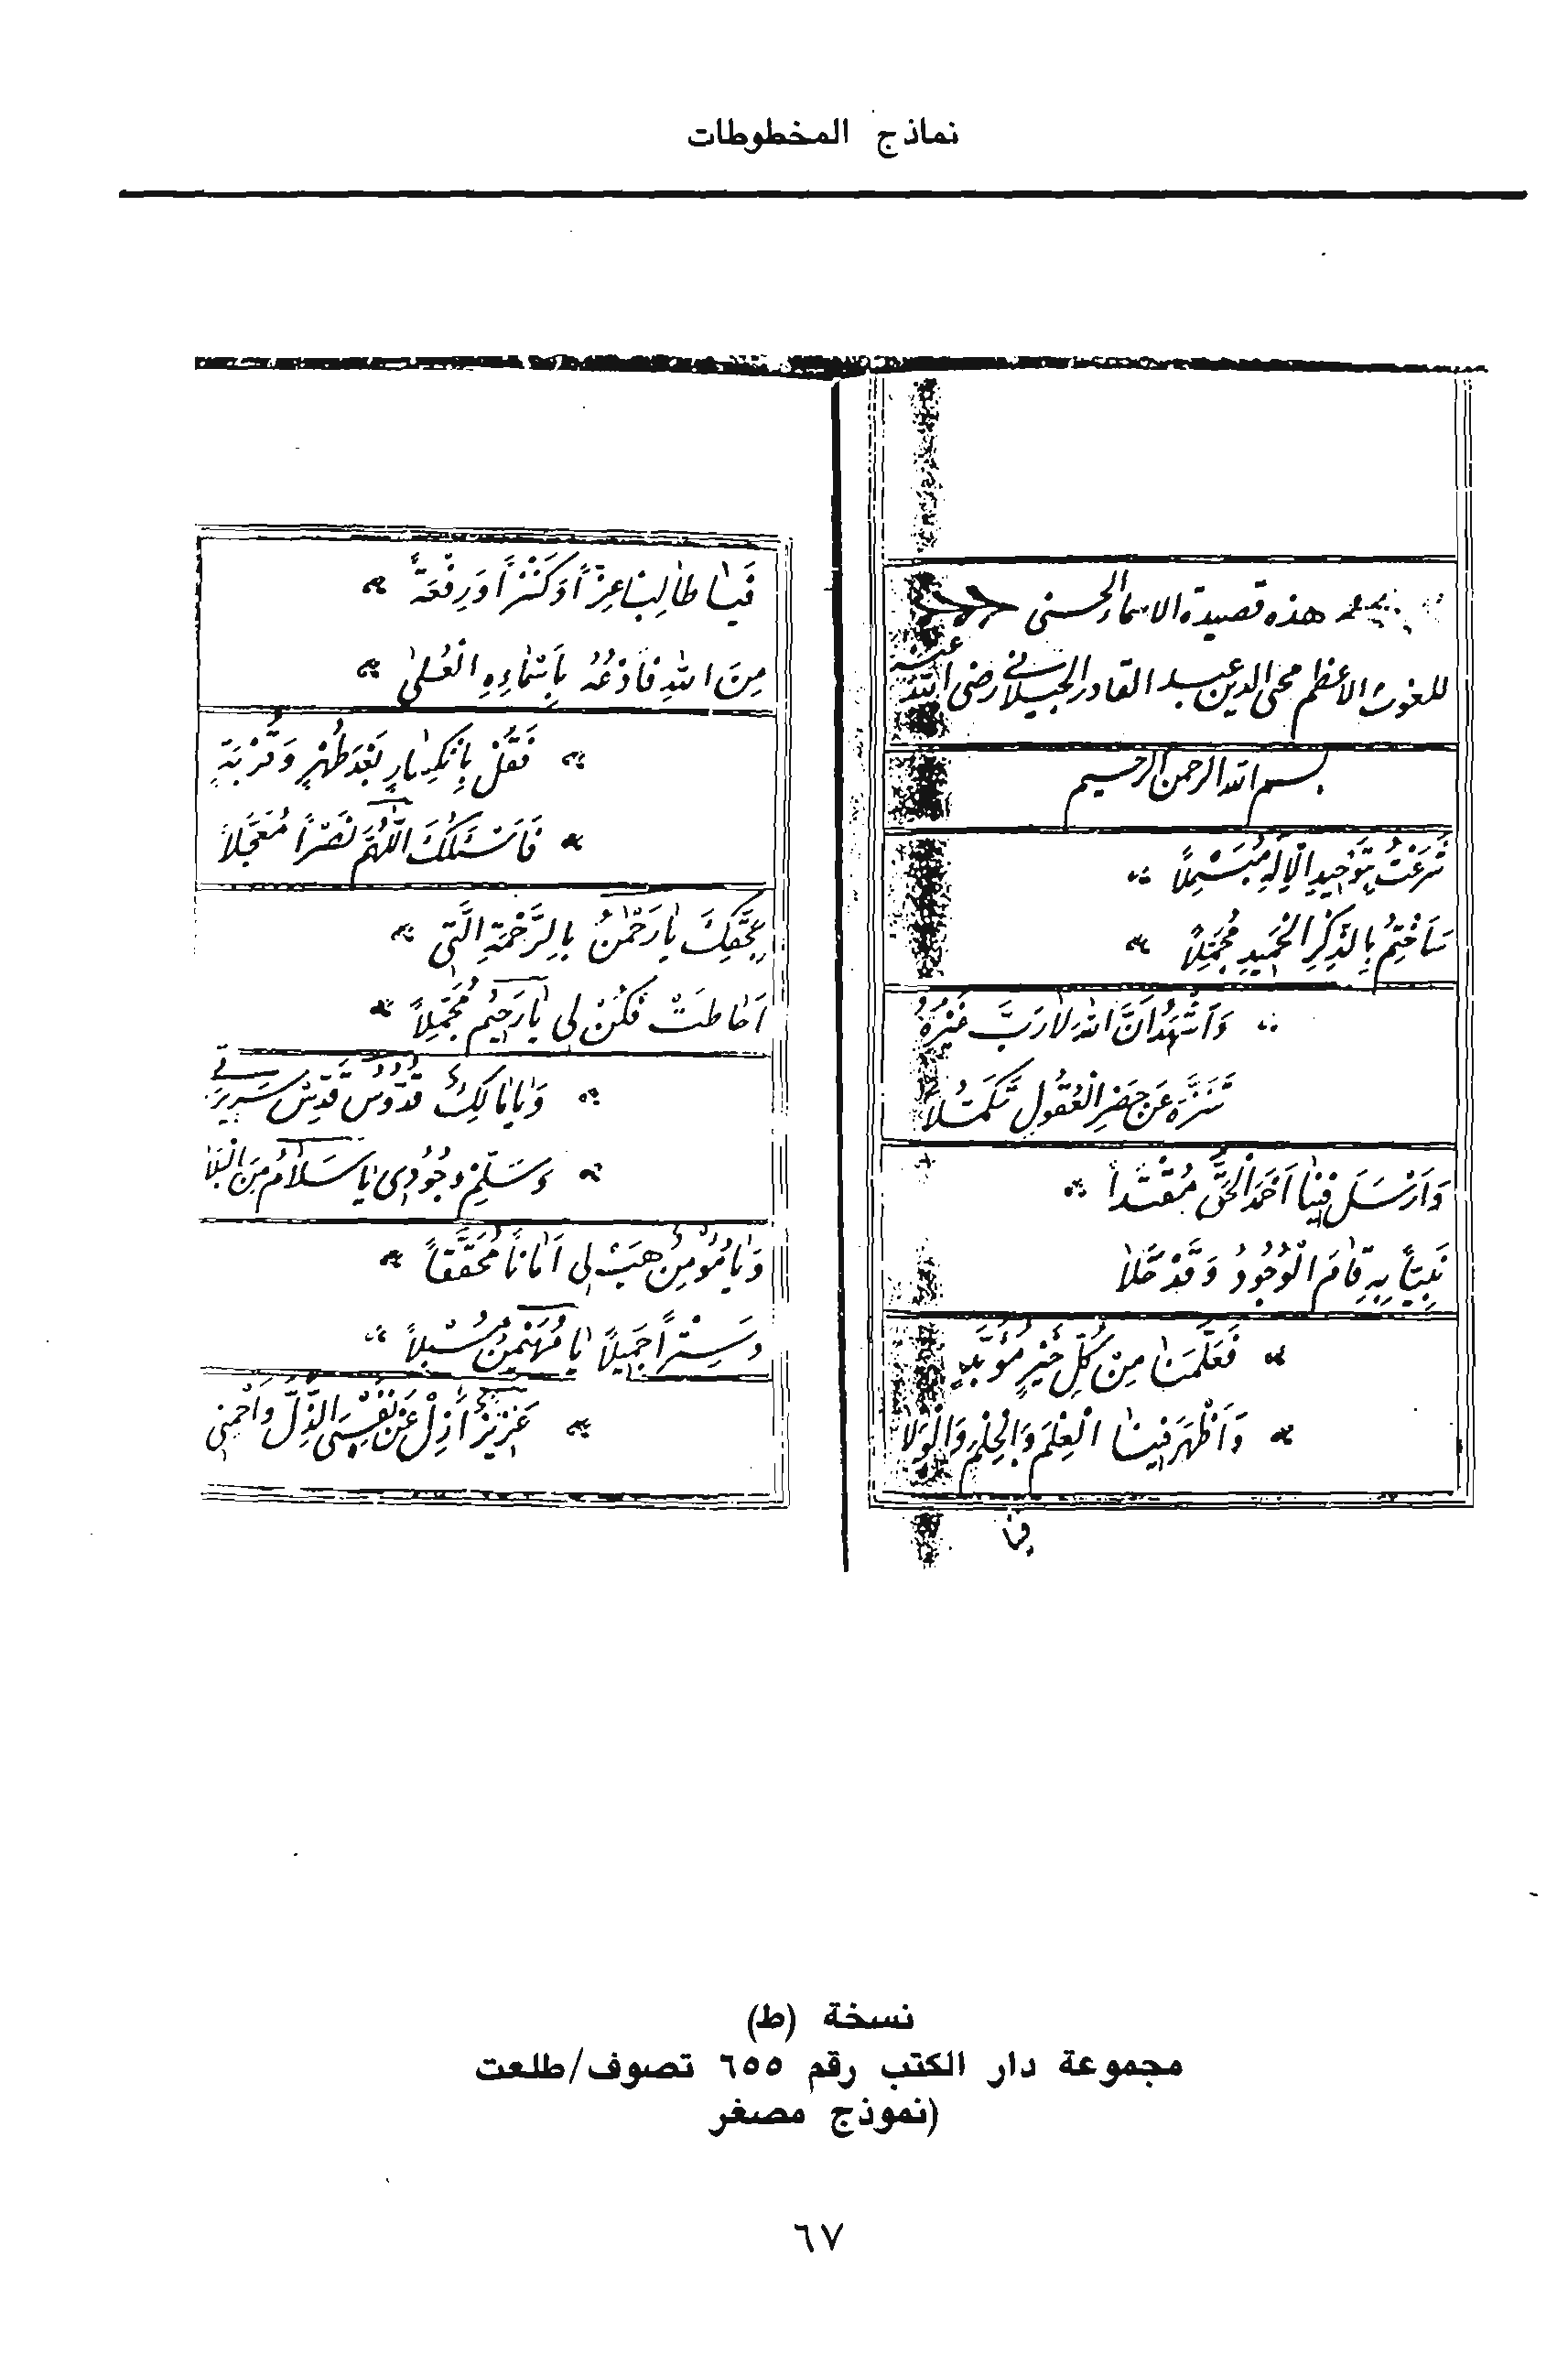 نماذج المخطوطات
هذه قصيدة الاسماء الحسنى
للغوث الاعظم محى الدين عبد القادر الجيلانى رضى الله عنه
بسم الله الرحمن الرحيم
شَرَعْتُ بِتَوْحِيدِ الْاِلٰهِ مُبَسْمِلًا
سَاَخْتِمُ بِالذِّكْرِ الْحَمِيدِ مُجَمِّلًا
وَاَشْهَدُ اَنَّ اللهَ لَا رَبَّ غَيْرُهُ
تَنَزَّهَ عَنْ حَصْرِ الْعُقُولِ تَكَمُّلًا
وَاَرْسَلَ فِينَا اَحْمَدَ الْحَقِّ مُقْتَدًا
نَبِيًّا بِهِ قَامَ الْوُجُودُ وَقَدْ خَلَا
فَعَلَّمَنَا مِنْ كُلِّ خَيْرٍ مُؤَيَّدٍ
وَاَظْهَرَ فِينَا الْعِلْمَ وَالْحِلْمَ وَالْوَلَا
فيا
فَيَا طَالِبًا عِزًّا وَكَنْزًا وَرِفْعَةً
مِنَ اللهِ فَادْعُهُ بِاَسْمَاءِهِ الْعُلٰى
فَقُلْ بِانْكِسَارٍ بَعْدَ طُهْرٍ وَقُرْبَةٍ
فَاَسْئَلُكَ اللّٰهُمَّ نَصْرًا مُعَجَّلًا
بِحَقِّكَ يَا رَحْمٰنُ بِالرَّحْمَةِ الَّتِى
اَحَاطَتْ فَكُنْ لِى يَا رَحِيمُ مُجَمِّلًا
وَيَا مَالِكُ قُدُّوسُ قَدِّسْ سَرِيرَتِى
وَسَلِّمْ وُجُودِى يَا سَلَامُ مِنَ الْبَلَا
وَيَا مُؤْمِنُ هَبْ لِى اَمَانًا مُحَقَّقًا
وَسِتْرًا جَمِيلًا يَا مُهَيْمِنُ مُسْبِلًا
عَزِيزُ اَزِلْ عَنْ نَفْسِىَ الذُّلَّ وَاحْمِنِى
نسخة (ط)
مجموعة دار الكتب رقم ٦٥٥ تصوف/طلعت
(نموذج مصغر
٦٧